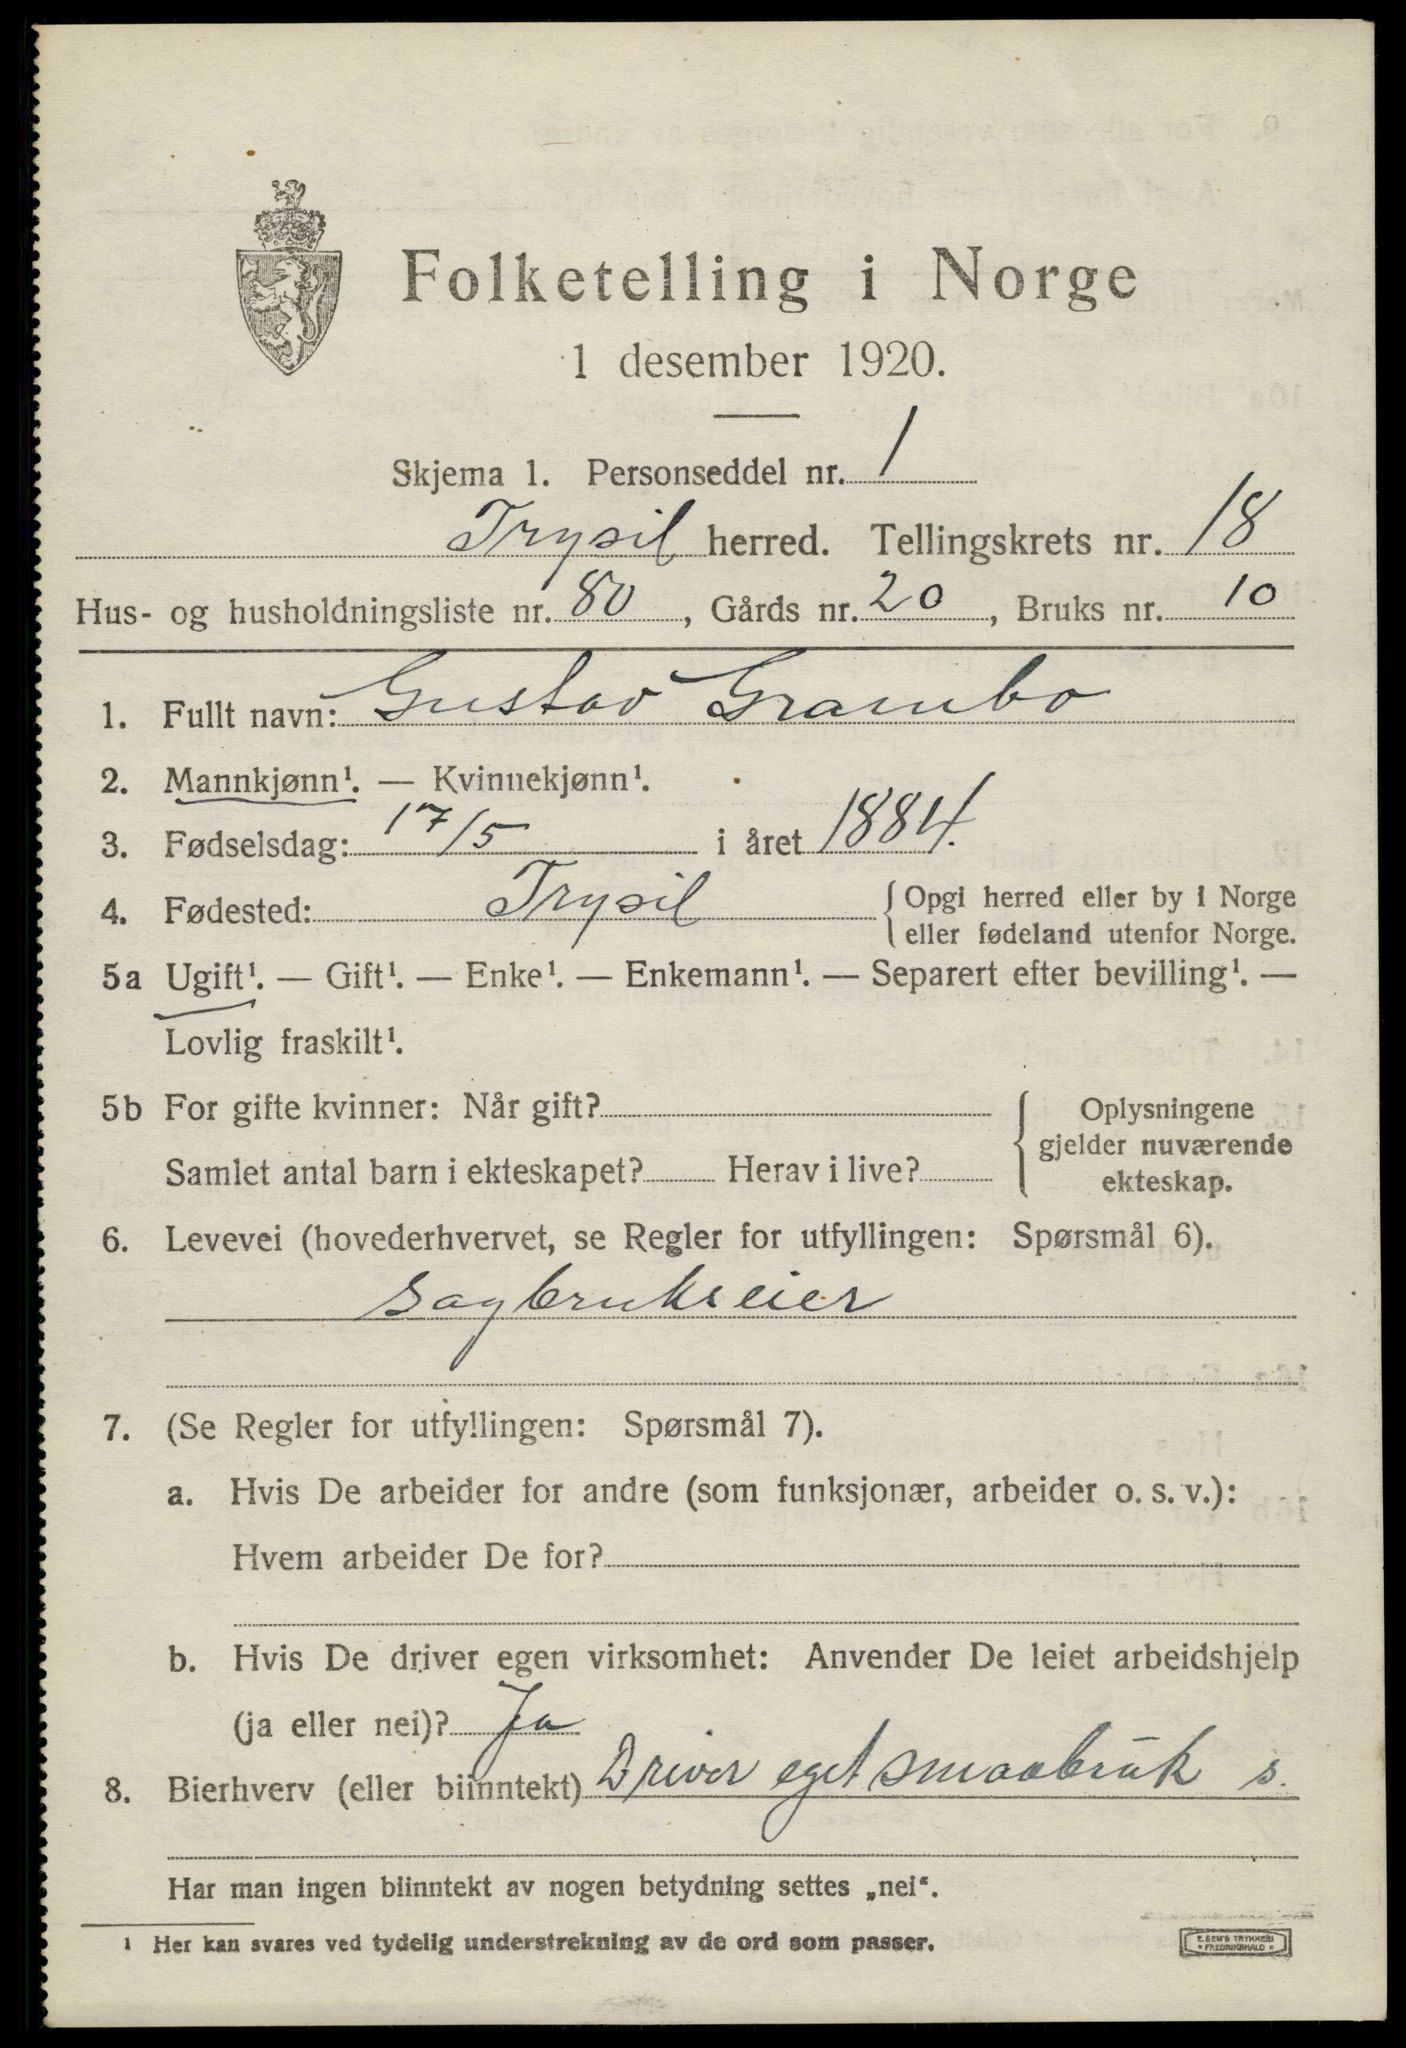 Folketelling i Norge
1 desember 1920.
Skjema 1. Personseddel nr. 1
Trysil herred. Tellingskrets nr. 18
Hus- og husholdningsliste nr. 80, Gårds nr. 20, Bruks nr. 10
1. Fullt navn: Gustav Grambo
2. Mannkjønn¹. — Kvinnekjønn¹.
3. Fødselsdag: 17/5 i året 1884.
4. Fødested: Trysil {Opgi herred eller by i Norge
eller fødeland utenfor Norge.
5a Ugift¹. — Gift¹. — Enke¹. — Enkemann¹. — Separert efter bevilling¹. —
Lovlig fraskilt¹.
5b For gifte kvinner: Når gift?
Samlet antal barn i ekteskapet? Herav i live?
Oplysningene
gjelder nuværende
ekteskap.
6. Levevei (hovederhvervet, se Regler for utfyllingen: Spørsmål 6).
Sagbrukseier
7. (Se Regler for utfyllingen: Spørsmål 7).
a. Hvis De arbeider for andre (som funksjonær, arbeider o. s. v.):
Hvem arbeider De for?
b. Hvis De driver egen virksomhet: Anvender De leiet arbeidshjelp
(ja eller nei)? Ja
8. Bierhverv (eller biinntekt) Driver eget smaabruk s.
Har man ingen biinntekt av nogen betydning settes „nei“.
¹ Her kan svares ved tydelig understrekning av de ord som passer.
E. SEM'S TRYKKERI
* FREDRIKSHALD *